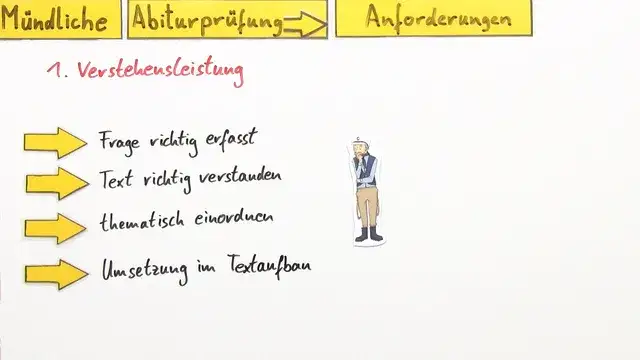 Mündliche Abiturprüfung Anforderungen
1. Verstehensleistung
Frage richtig erfasst
Text richtig verstanden
thematisch einordnen
Umsetzung im Textaufbau